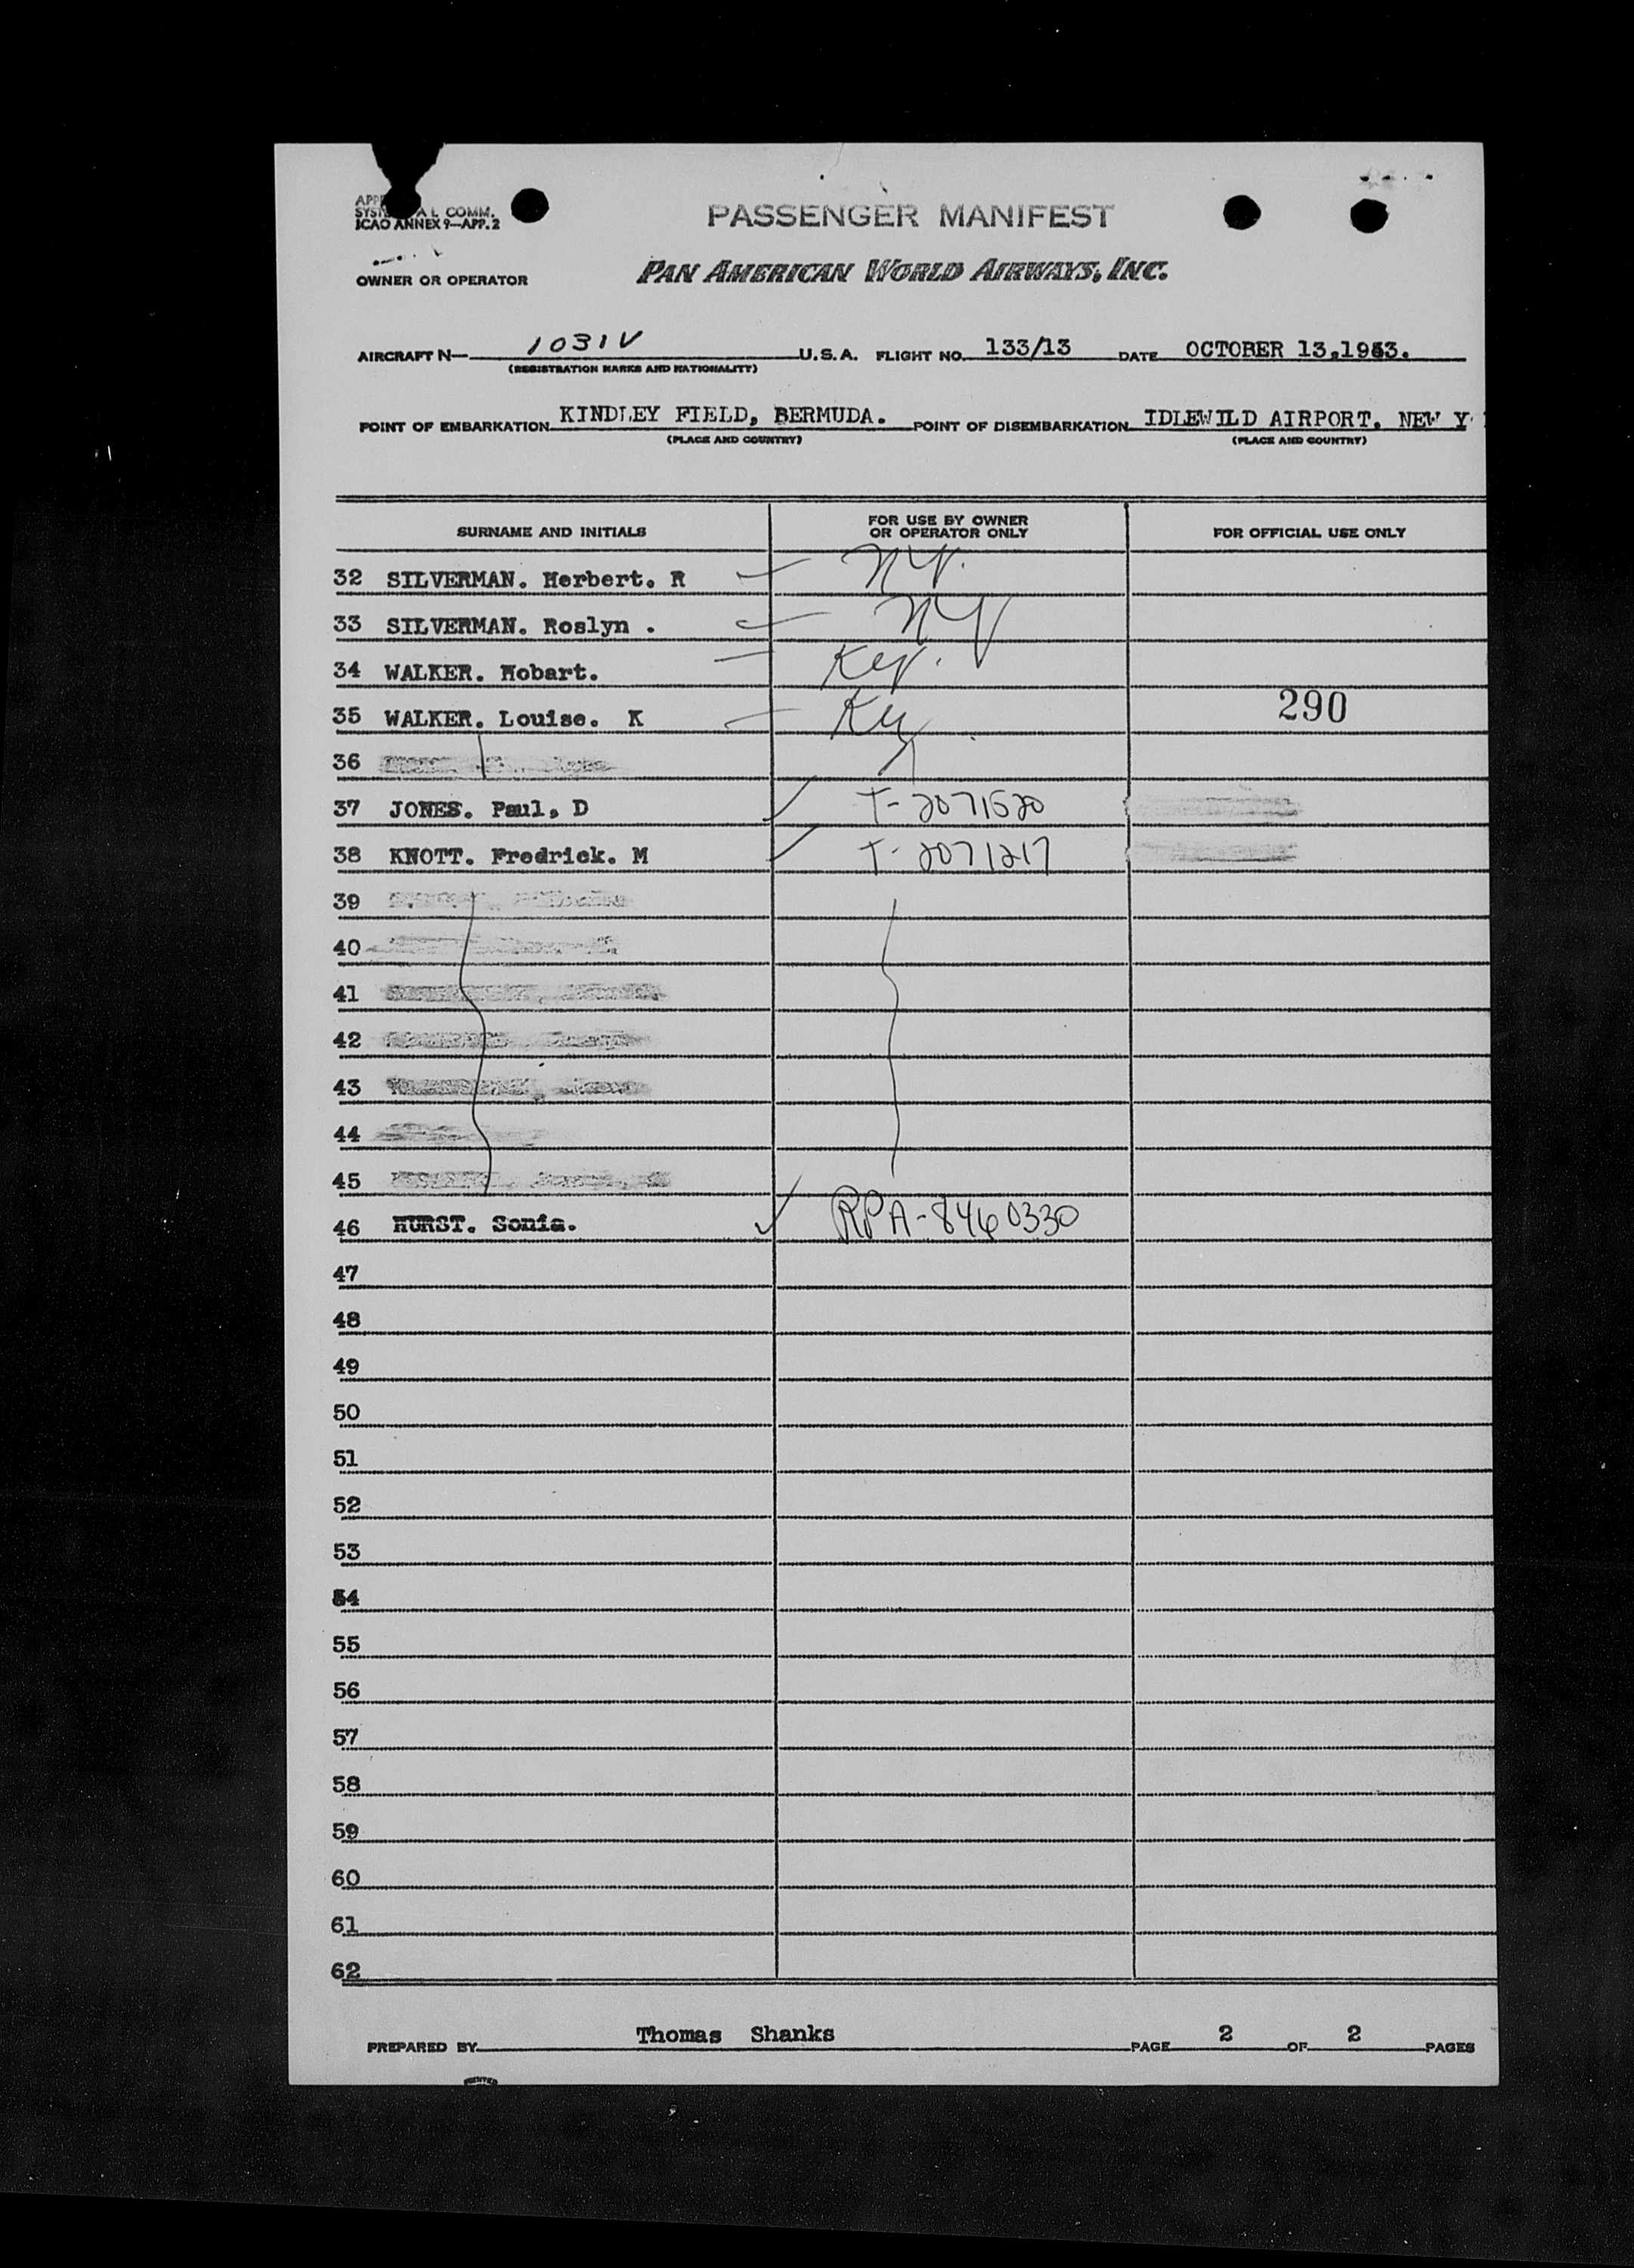 SYST AL COMM.
ICAO ANNEX 9—APP. 2
PASSENGER MANIFEST
OWNER OR OPERATOR
PAN AMERICAN WORLD AIRWAYS, INC.
AIRCRAFT N— 1031V U.S.A. FLIGHT NO. 133/13 DATE OCTOBER 13,1953.
(REGISTRATION MARKS AND NATIONALITY)
POINT OF EMBARKATION KINDLEY FIELD, BERMUDA. POINT OF DISEMBARKATION IDLEWILD AIRPORT. NEW Y
(PLACE AND COUNTRY) (PLACE AND COUNTRY)
SURNAME AND INITIALS FOR USE BY OWNER OR OPERATOR ONLY FOR OFFICIAL USE ONLY
32 SILVERMAN. Herbert. R NY.
33 SILVERMAN. Roslyn . NY
34 WALKER. Hobart. Ky.
35 WALKER. Louise. K Ky 290
36
37 JONES. Paul, D T-2071520
38 KNOTT. Fredrick. M T-2071217
39
40
41
42
43
44
45
46 HURST. Sonia. RPA-8460330
47
48
49
50
51
52
53
54
55
56
57
58
59
60
61
62
PREPARED BY Thomas Shanks PAGE 2 OF 2 PAGES
PRINTED